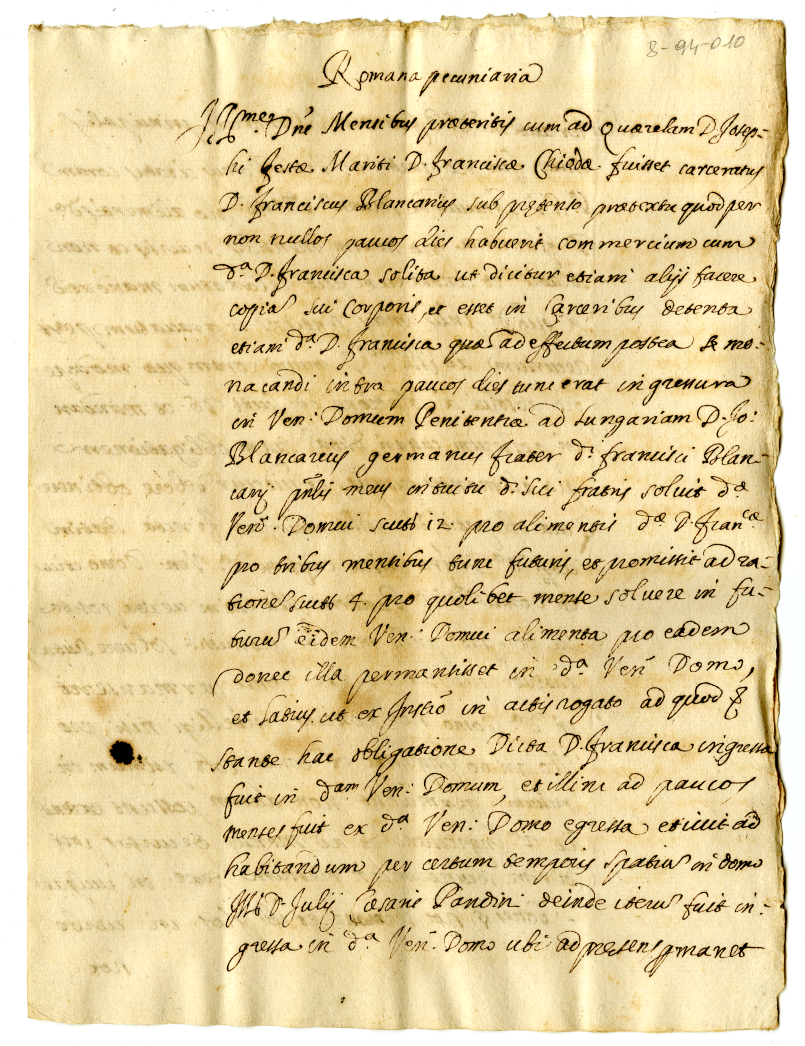 8-94-010
Romana pecuniaria
Ill.me D.ne Mensibus præteritis cum ad Quærelam D. Josep-
hi Festæ Mariti D. Franciscæ Chiodæ fuisset carceratus
D. Franciscus Blancarius sub prętenso prætextu quod per
non nullos paucos dies habuerit commercium cum
d.a D. Francisca solita ut dicitur etiam alijs facere
copiā sui corporis, et esset in Carceribus detenta
etiam d.a D. Francisca quæ ad effectum postea se mo-
nacandi intra paucos dies tunc erat ingressura
in Ven: Domum Penitentiæ ad Lungariam D. Jo:
Blancarius germanus frater d. Francisci Blan-
carij pn̄lis meus intuitu d. sui fratris solvit d.æ
Ven: Domui scuti 12. pro alimentis d.æ D. Fran.cæ
pro tribus mensibus tunc futuris, et promissit ad ra-
tionē scuti 4. pro quolibet mense solvere in fu-
turū eidem Ven: Domui alimenta pro eadem
donec illa permansisset in d.a Ven: Domo,
et latius ut ex Instrō in actis rogato ad quod
stante hac obligatione Dicta D. Francisca ingressa
fuit in d.am Ven: Domum, et illinc ad paucos
menses fuit ex d.a Ven: Domo egressa et ivit ad
habitandum per certum temporis spatiū in domo
Ill. D. Julij Cæsaris Pandini deinde iterū fuit in-
gressa in d.a Ven: Domo ubi ad præsens p̄manet